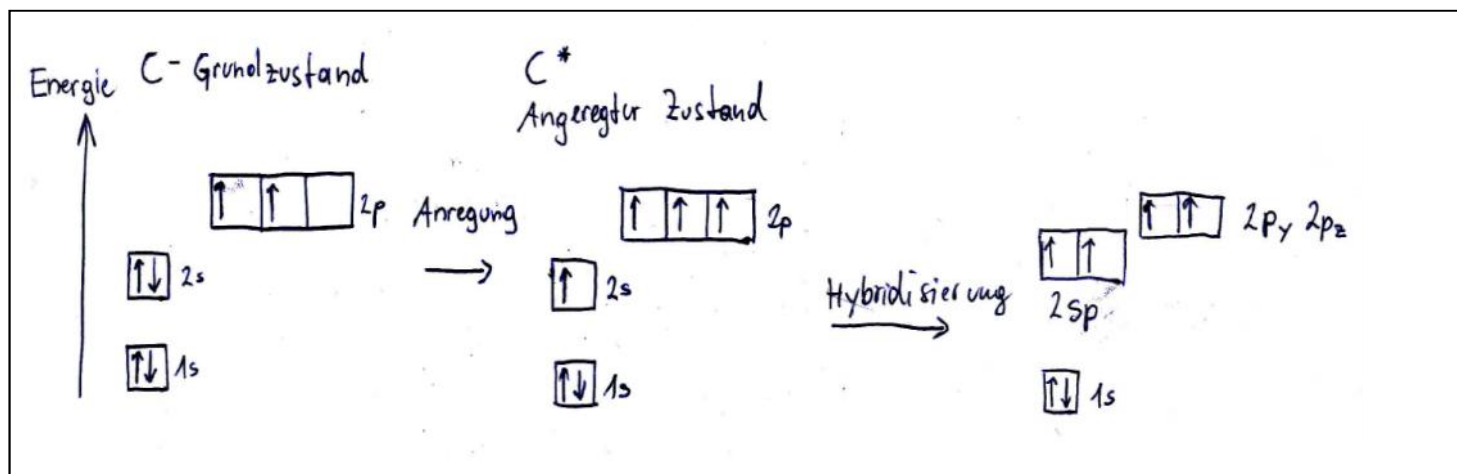 Energie
C - Grundzustand
C*
Angeregter Zustand
2p
Anregung
2p
2py 2pz
2s
2s
Hybridisierung
2sp
1s
1s
1s